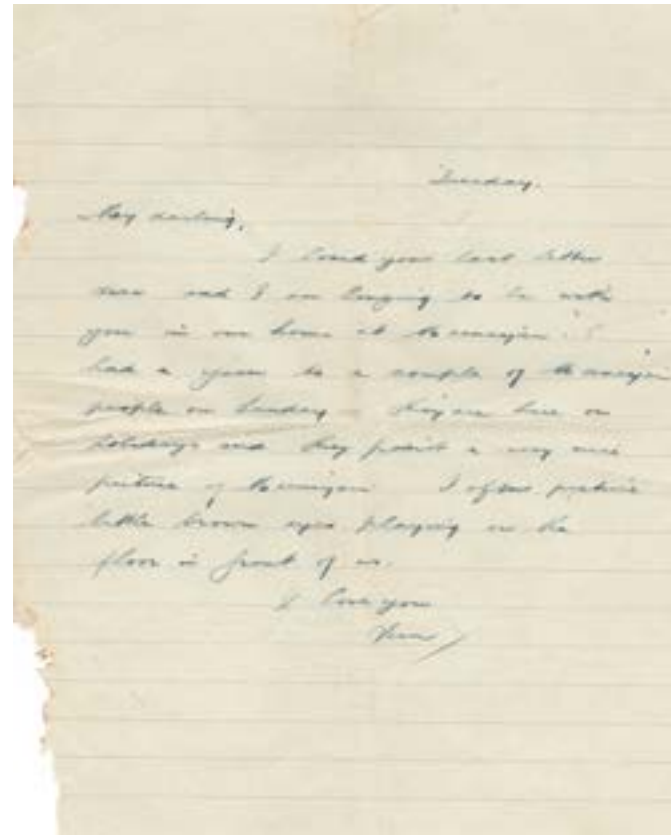 Tuesday.
My darling,
I loved your last letter
and I am longing to be with
you in our home at
had a to a couple of
people on Sunday they are here on
holidays and they paint a very nice
picture of I often picture
little brown eyes playing on the
floor in front of us.
I love you